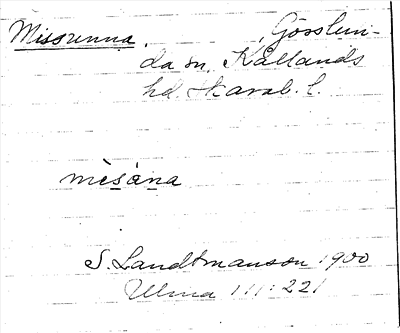 Missunna. , Gösslun-
da sn, Kållands
hd. Skarab. l.
mèsàna
S. Landtmanson 1900
Ulma 111:221